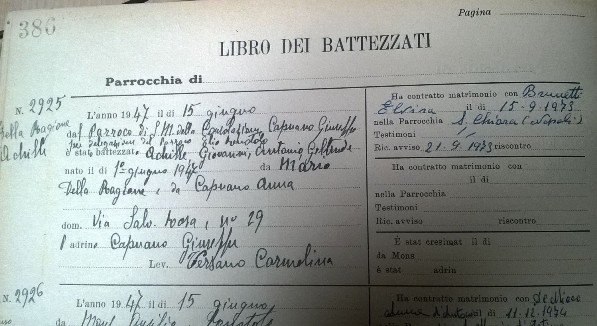 Pagina
386
LIBRO DEI BATTEZZATI
Parrocchia di
N. 2925
Della Ragione
Achille
L'anno 1947 il dì 15 giugno
dal Parroco di S. M. della Consolazione, Capuano Giuseppe
per delegazione del Parroco
è stato battezzato Achille, Giovanni, Antonio,
nato il dì 1° giugno 1947 da Mario
Della Ragione, e da Capuano Anna
dom. Via Salv. Rosa, nº 29
Padrino Capuano Giuseppe
Lev. Versano Carmelina
Ha contratto matrimonio con Brunetti
Elvira il dì 15-9-1973
nella Parrocchia S. Chiara (Napoli)
Testimoni
Ric. avviso 21-9-1973 riscontro
Ha contratto matrimonio con
il dì
nella Parrocchia
Testimoni
Ric. avviso riscontro
È stat cresimat il dì
da Mons
è stat adrin
N. 2926
L'anno 1947 il dì 15 giugno
da
Ha contratto matrimonio con
il dì 11-12-1974